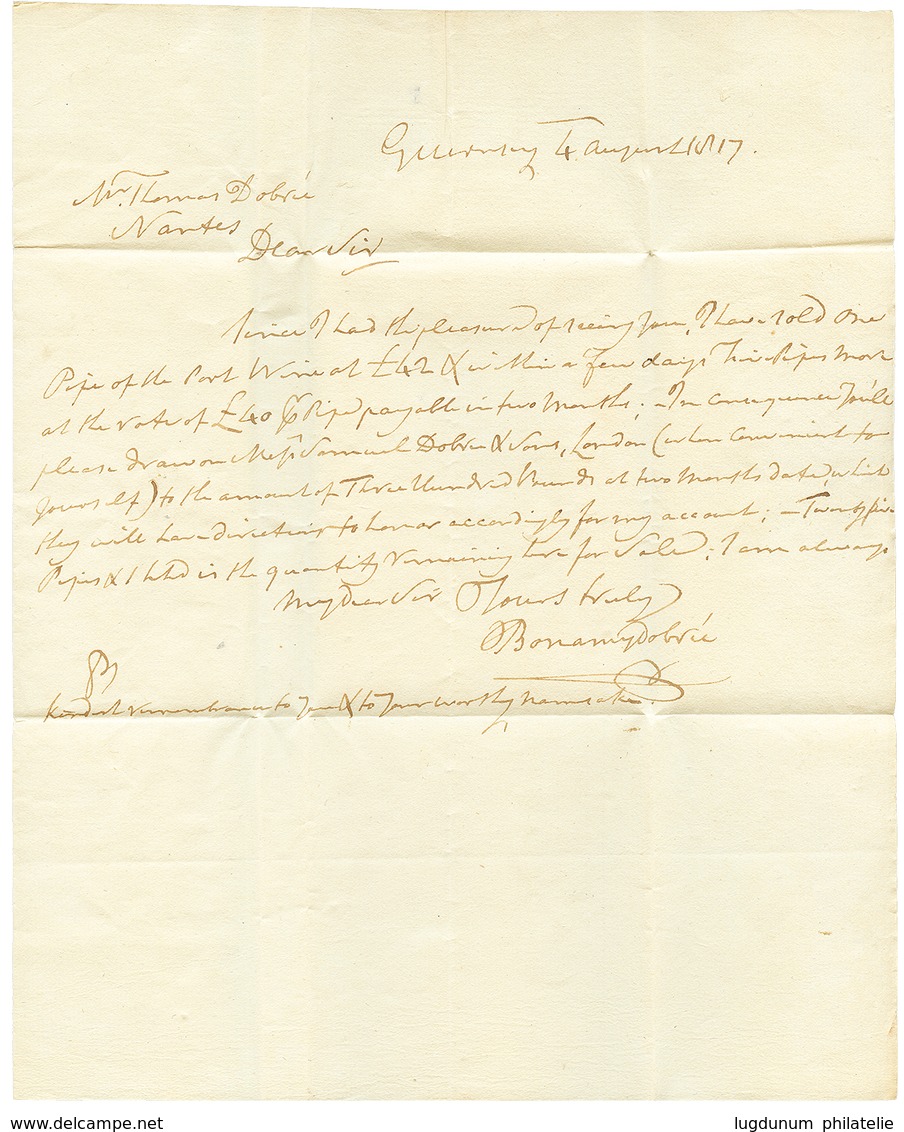 Guernsey 4 August 1817.
Mr. Thomas Dobrée
Nantes
Dear Sir
Since I had the pleasure of seeing you, I have sold one
Pipe of the Port Wine at £42 & within a few days Pipes more
at the rate of £40 Pipe payable in two Months; - In consequence You'll
please draw on Messrs Samuel Dobrée & Sons, London (when Convenient to
yourself) to the amount of Three Hundred Pounds at two Months date, which
they will have directions to honor accordingly for my account; - Twenty five
Pipes & 1 hhd is the quantity remaining here for Sale; I am always
My Dear Sir Yours truly
Bonamy Dobrée
Kindest remembrance to You & to Your worthy namesake.
www.delcampe.net
lugdunum philatelie